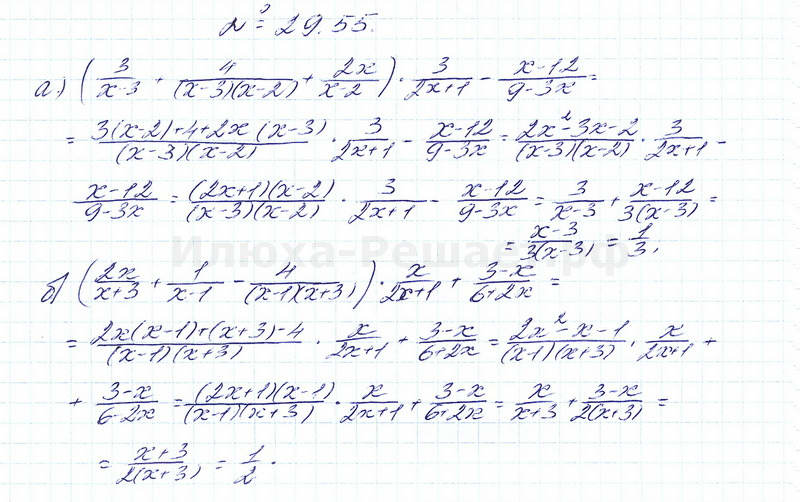 № 29.55.
а) (3/(x-3) + 4/((x-3)(x-2)) + 2x/(x-2)) · 3/(2x+1) - (x-12)/(9-3x) =
= (3(x-2)+4+2x(x-3))/((x-3)(x-2)) · 3/(2x+1) - (x-12)/(9-3x) = (2x²-3x-2)/((x-3)(x-2)) · 3/(2x+1) -
(x-12)/(9-3x) = ((2x+1)(x-2))/((x-3)(x-2)) · 3/(2x+1) - (x-12)/(9-3x) = 3/(x-3) + (x-12)/(3(x-3)) =
= (x-3)/(3(x-3)) = 1/3;
Илюха-Решает.рф
б) (2x/(x+3) + 1/(x-1) - 4/((x-1)(x+3))) · x/(2x+1) + (3-x)/(6+2x) =
= (2x(x-1)+(x+3)-4)/((x-1)(x+3)) · x/(2x+1) + (3-x)/(6+2x) = (2x²-x-1)/((x-1)(x+3)) · x/(2x+1) +
+ (3-x)/(6-2x) = ((2x+1)(x-1))/((x-1)(x+3)) · x/(2x+1) + (3-x)/(6+2x) = x/(x+3) + (3-x)/(2(x+3)) =
= (x+3)/(2(x+3)) = 1/2.